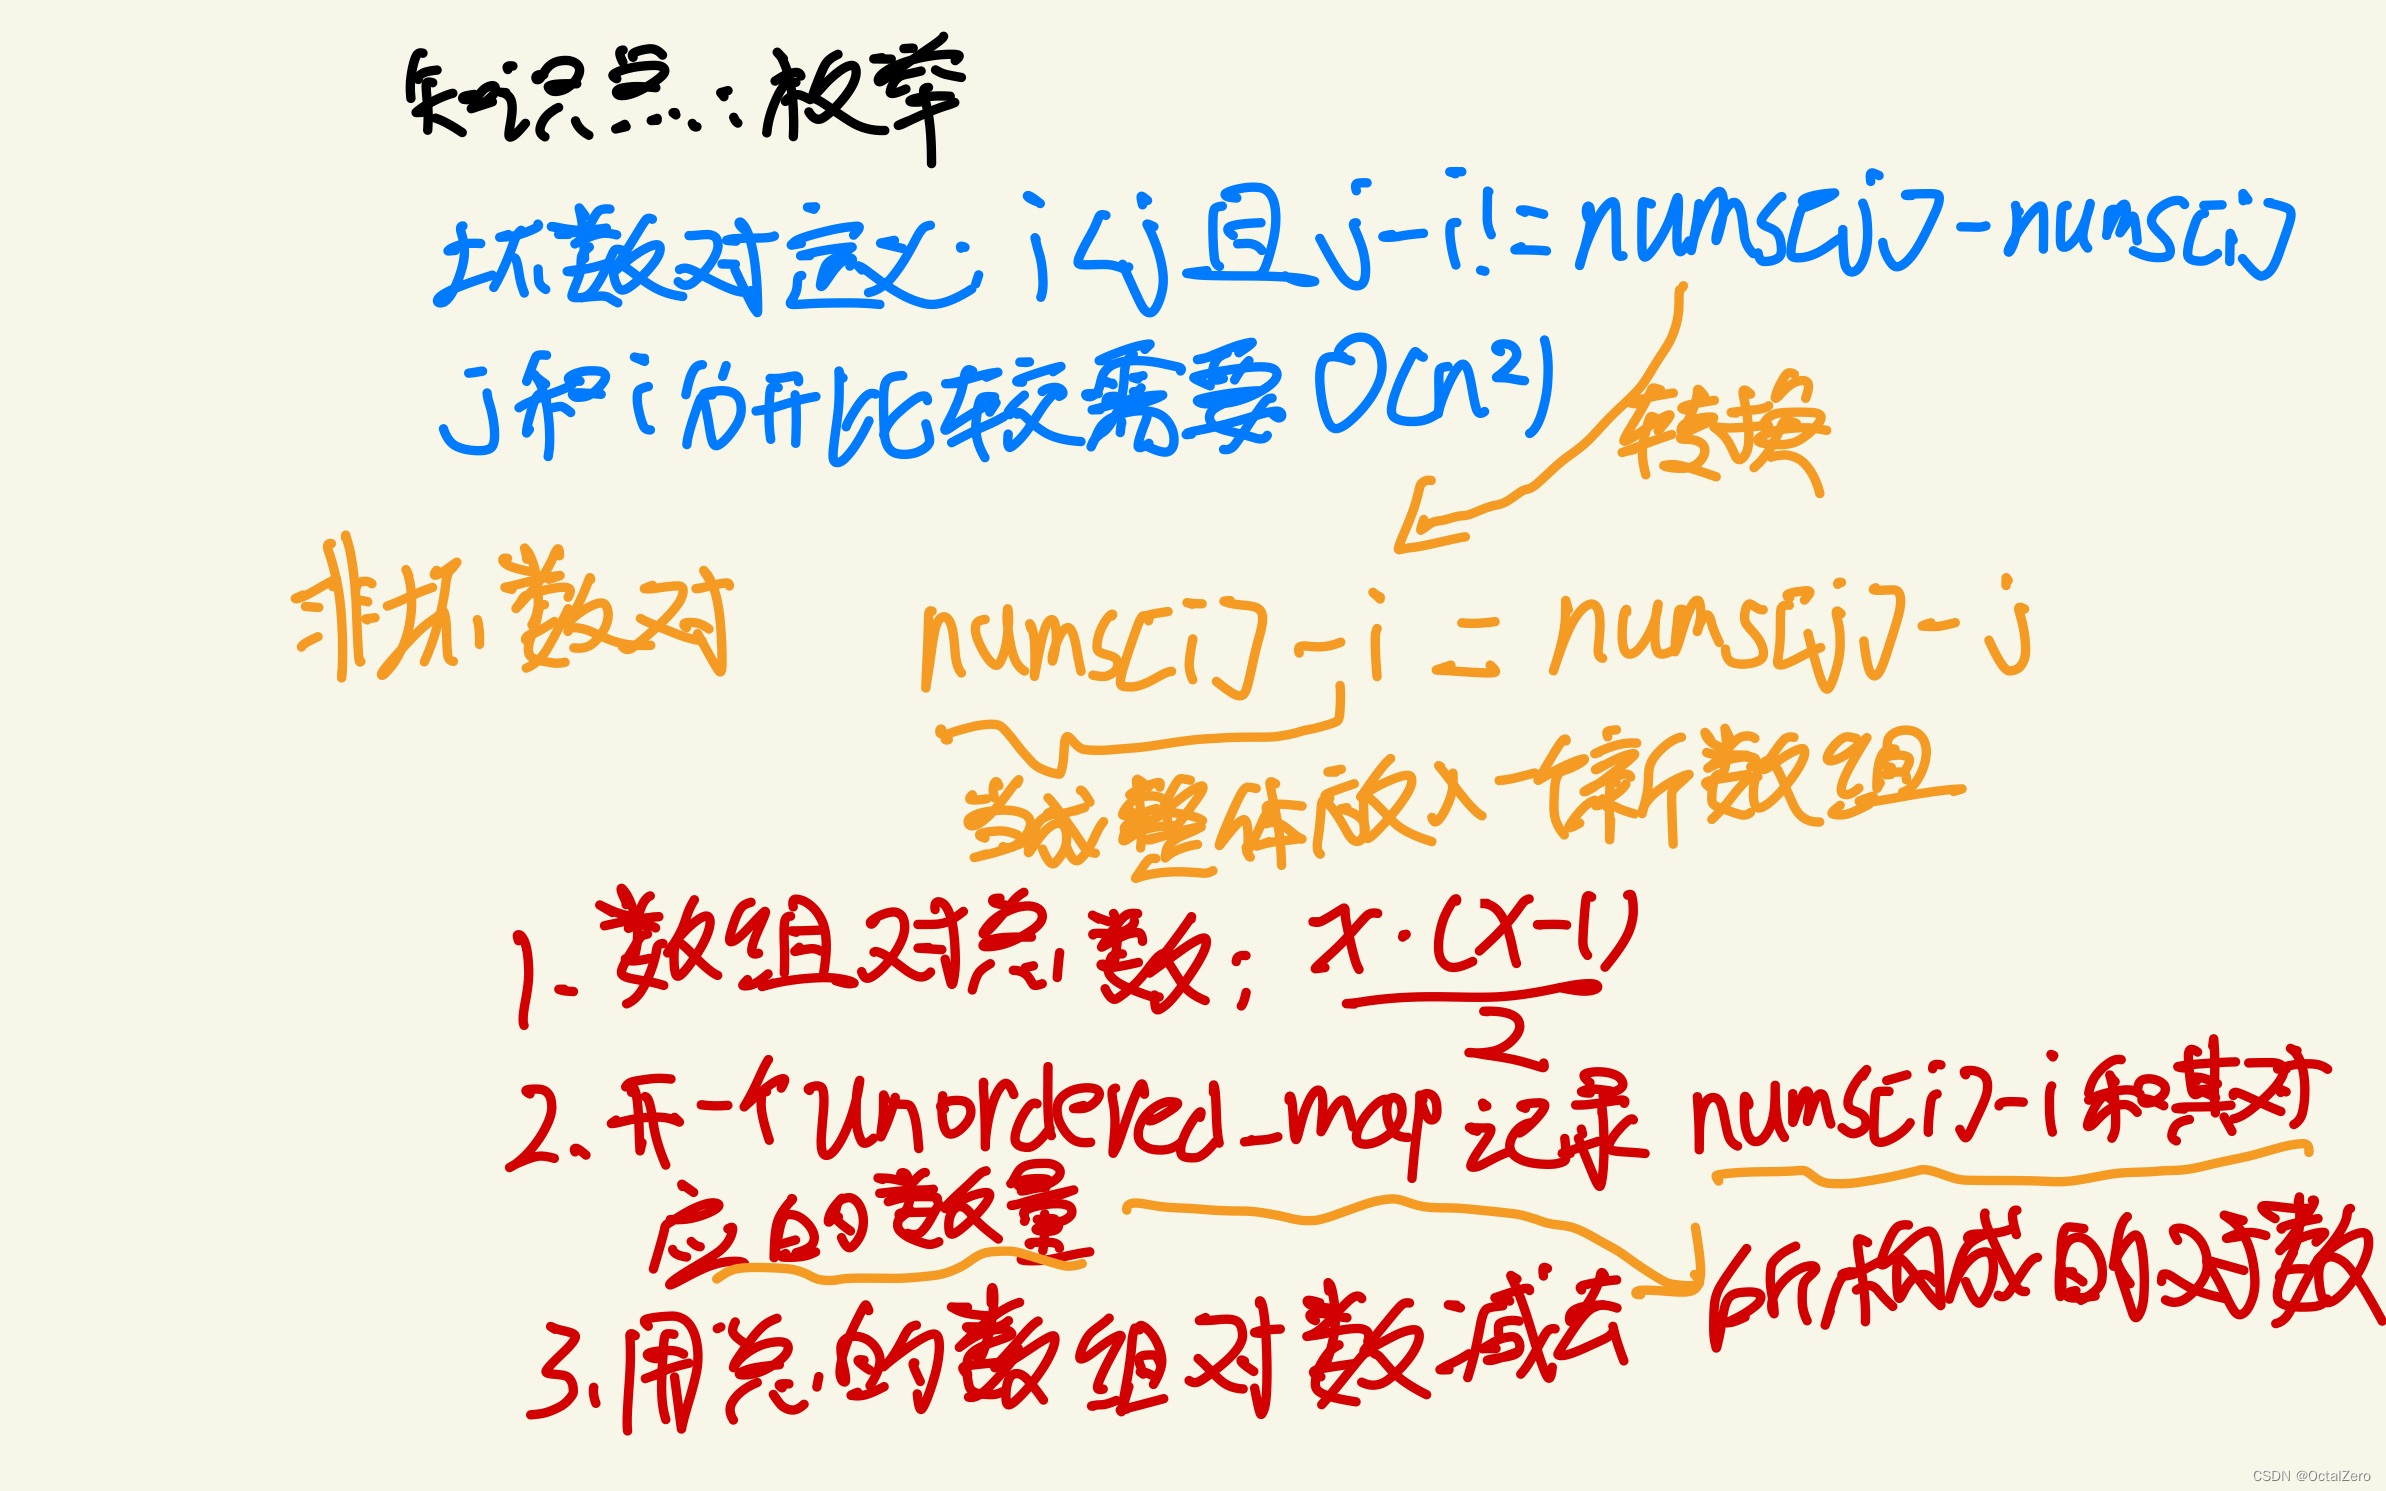 知识点:枚举
坏数对定义: i < j 且 j - i != nums[j] - nums[i]
j 和 i 分开比较需要 O(n²)
转换
非坏数对
nums[i] - i = nums[j] - j
当成整体放入一个新数组
1. 数组对总数: x·(x-1)/2
2. 开一个 unordered_map 记录 nums[i] - i 和其对
应的数量
所构成的对数
3. 用总的数组对数减去
CSDN @OctalZero